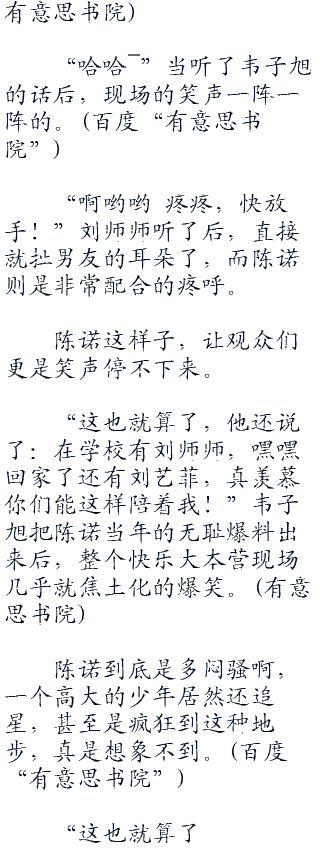 有意思书院）
“哈哈—”当听了韦子旭
的话后，现场的笑声一阵一
阵的。（百度“有意思书
院”）
“啊哟哟 疼疼，快放
手！”刘师师听了后，直接
就扯男友的耳朵了，而陈诺
则是非常配合的疼呼。
陈诺这样子，让观众们
更是笑声停不下来。
“这也就算了，他还说
了：在学校有刘师师，嘿嘿
回家了还有刘艺菲，真羡慕
你们能这样陪着我！”韦子
旭把陈诺当年的无耻爆料出
来后，整个快乐大本营现场
几乎就焦土化的爆笑。（有意
思书院）
陈诺到底是多闷骚啊，
一个高大的少年居然还追
星，甚至是疯狂到这种地
步，真是想象不到。（百度
“有意思书院”）
“这也就算了